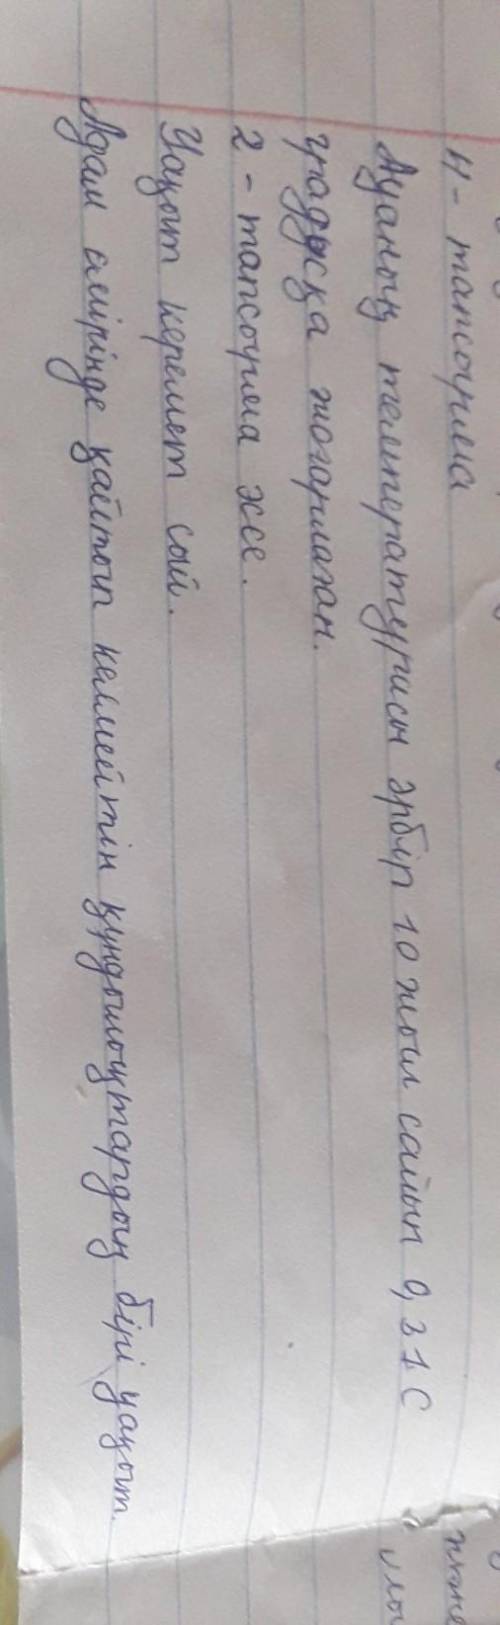 4 - тапсырма
Ауаның температурасы әрбір 10 жыл сайын 0,31 С
градусқа жоғарлаған.
2 - тапсырма жсе.
Уақыт керемет сый.
Адам өмірінде қайтып келмейтін құндылықтардың бірі уақыт.